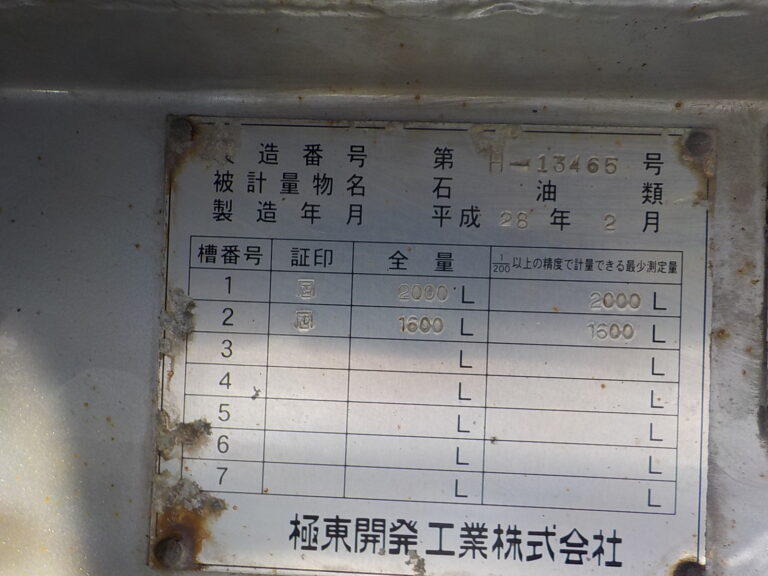 製造番号 第 H-13465 号
被計量物名 石油類
製造年月 平成 28 年 2 月
槽番号 証印 全量 1/200以上の精度で計量できる最少測定量
1 2000 L 2000 L
2 1600 L 1600 L
3 L L
4 L L
5 L L
6 L L
7 L L
極東開発工業株式会社